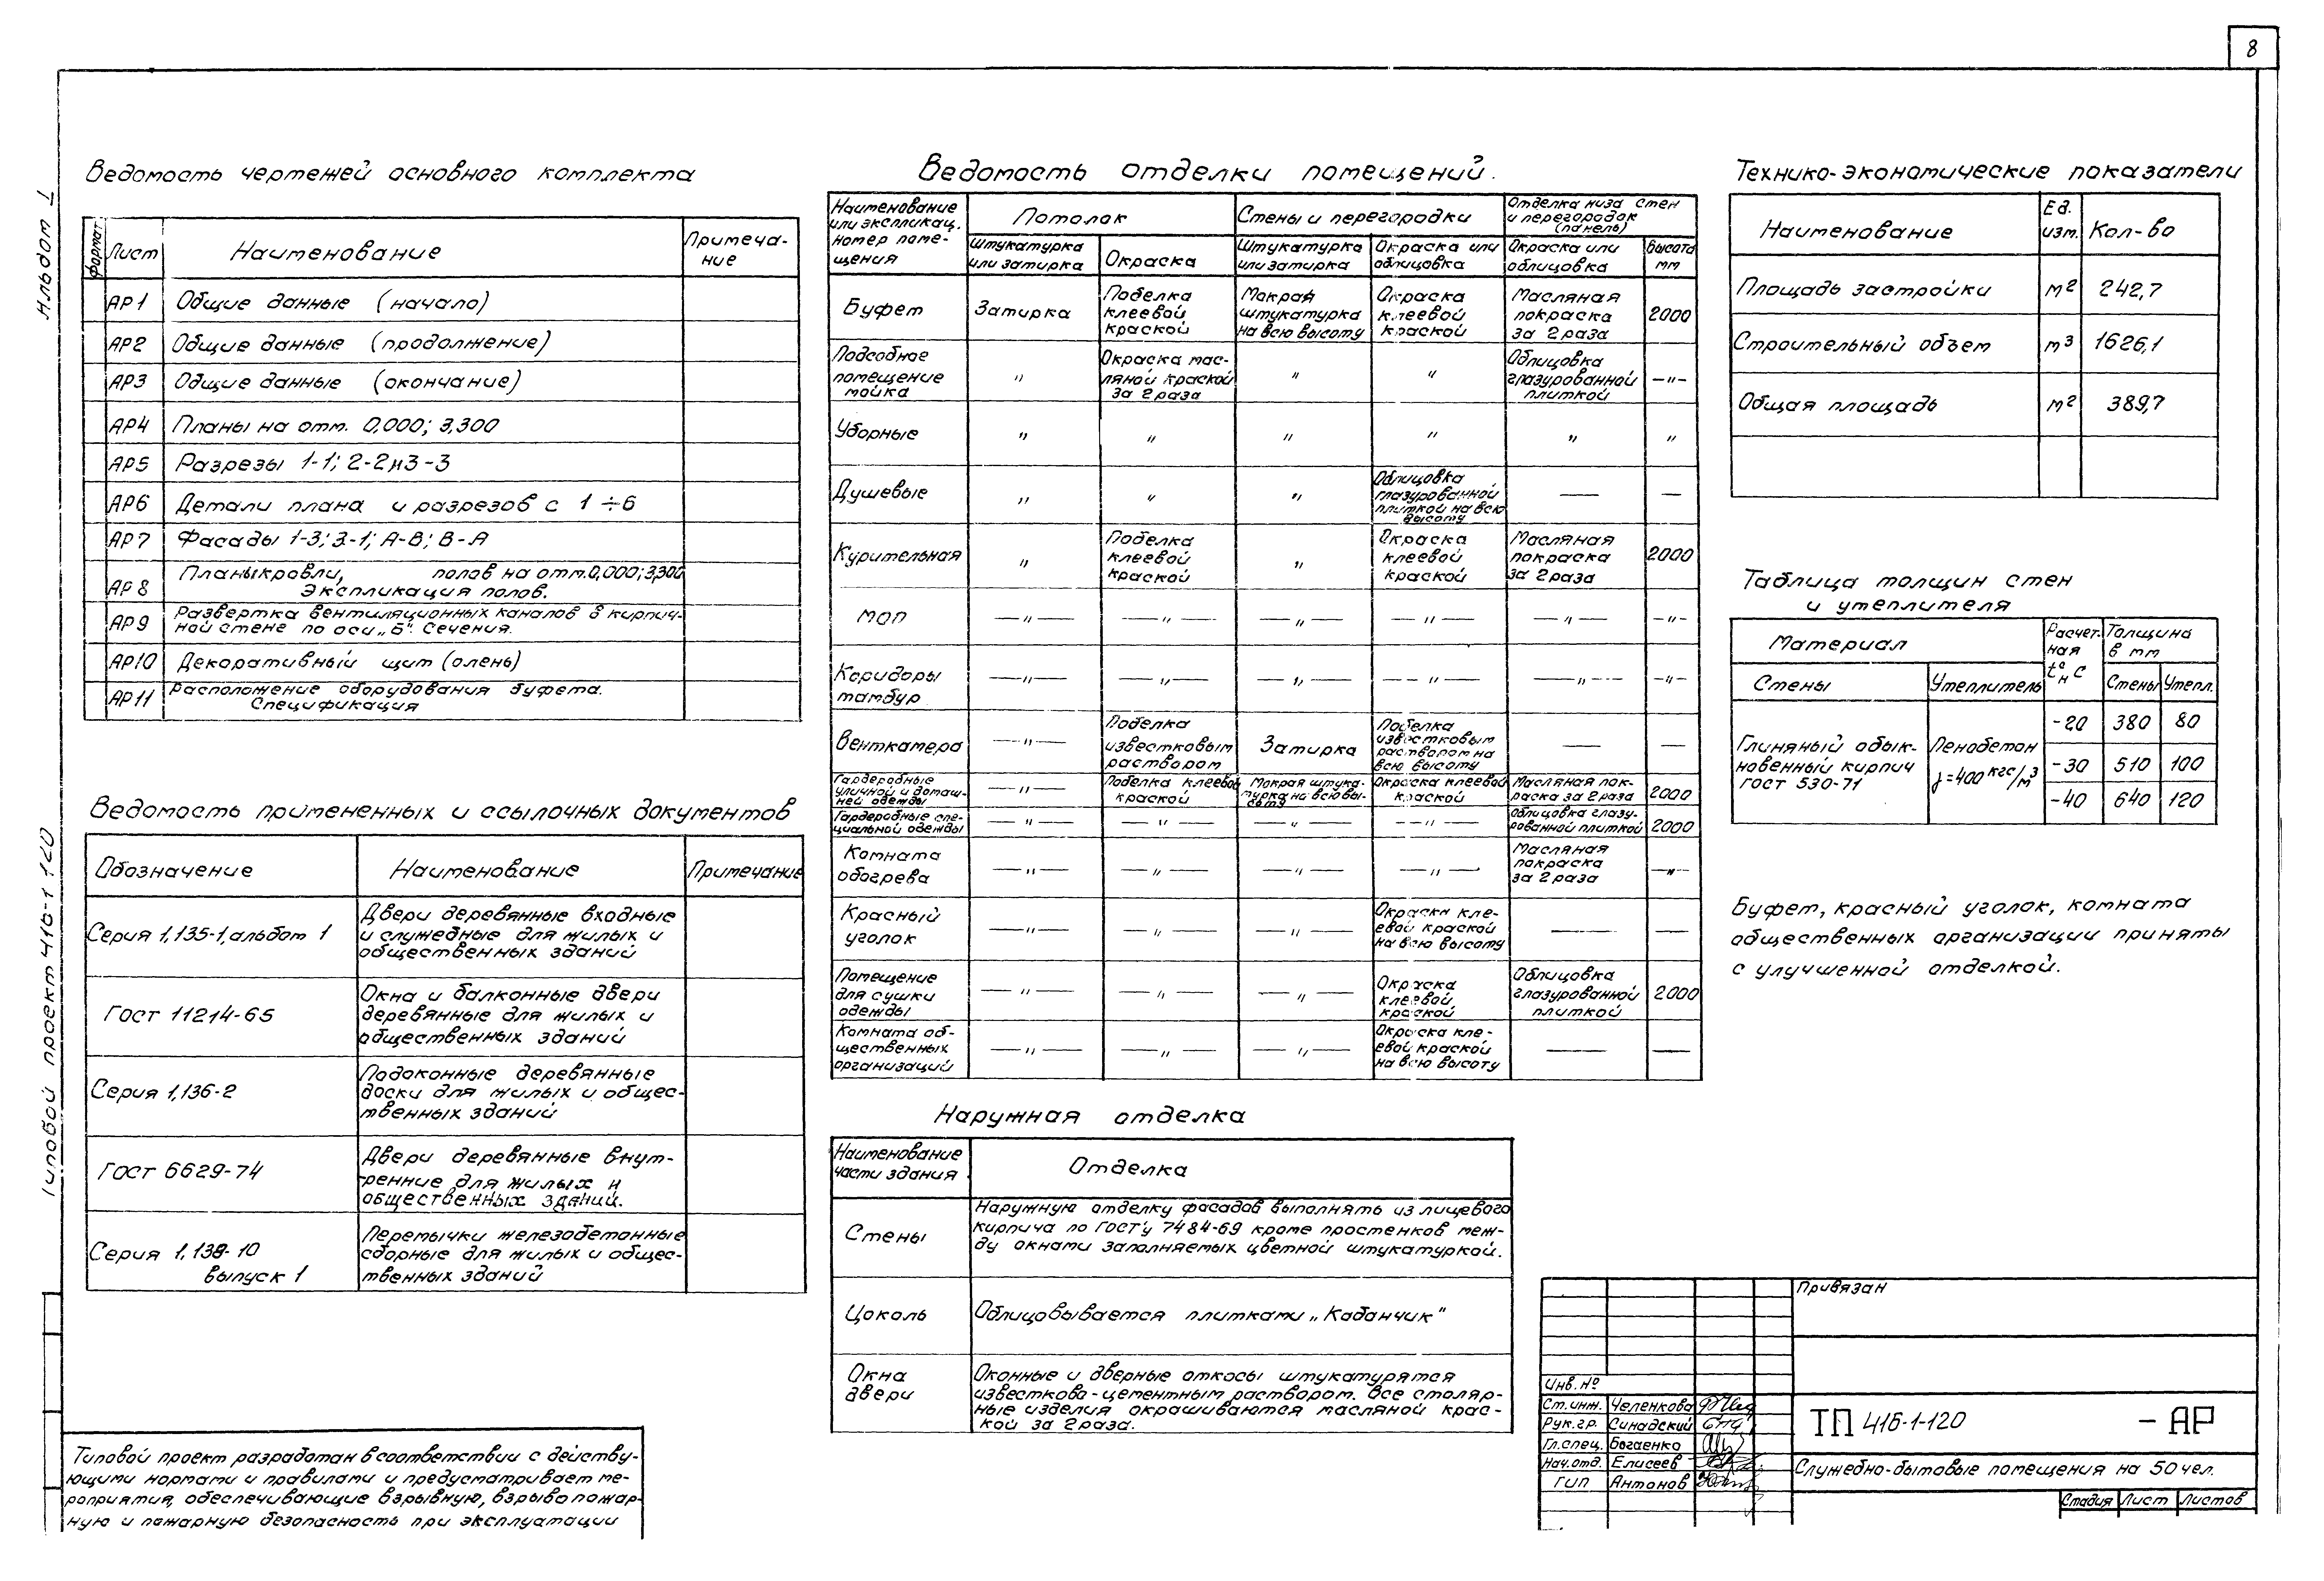 8
Альбом I
Типовой проект 416-1-120
Ведомость чертежей основного комплекта
Формат
Лист
Наименование
Примеча-
ние
АР1 Общие данные (начало)
АР2 Общие данные (продолжение)
АР3 Общие данные (окончание)
АР4 Планы на отм. 0,000; 3,300
АР5 Разрезы 1-1; 2-2 и 3-3
АР6 Детали плана и разрезов с 1÷6
АР7 Фасады 1-3; 3-1; А-В; В-А
АР8 План кровли, полов на отм. 0,000; 3,300
Экспликация полов.
АР9 Развертка вентиляционных каналов в кирпич-
ной стене по оси „Б". Сечения.
АР10 Декоративный щит (олень)
АР11 Расположение оборудования буфета.
Спецификация
Ведомость примененных и ссылочных документов
Обозначение Наименование Примечание
Серия 1,135-1, альбом 1
Двери деревянные входные
и служебные для жилых и
общественных зданий
Гост 11214-65
Окна и балконные двери
деревянные для жилых и
общественных зданий
Серия 1,136-2
Подоконные деревянные
доски для жилых и общес-
твенных зданий
Гост 6629-74
Двери деревянные внут-
ренние для жилых и
общественных зданий.
Серия 1,138-10
выпуск 1
Перемычки железобетонные
сборные для жилых и общес-
твенных зданий
Типовой проект разработан в соответствии с действу-
ющими нормами и правилами и предусматривает ме-
роприятия, обеспечивающие взрывную, взрывопожар-
ную и пожарную безопасность при эксплуатации
Ведомость отделки помещений.
Наименование
или экспликац.
номер поме-
щения
Потолок
Стены и перегородки
Отделка низа стен
и перегородок
(панель)
Штукатурка
или затирка
Окраска
Штукатурка
или затирка
Окраска или
облицовка
Окраска или
облицовка
Высота
мм
Буфет
Затирка
Побелка
клеевой
краской
Мокрая
штукатурка
на всю высоту
Окраска
клеевой
краской
Масляная
покраска
за 2 раза
2000
Подсобное
помещение
мойка
"
Окраска мас-
ляной краской
за 2 раза
"
"
Облицовка
глазурованной
плиткой
—"—
Уборные " " " " " "
Душевые " " "
Облицовка
глазурованной
плиткой на всю
высоту
— —
Курительная
"
Побелка
клеевой
краской
"
Окраска
клеевой
краской
Масляная
покраска
за 2 раза
2000
МОП —"— —"— —"— —"— —"— —"—
Коридоры
тамбур
—"— —"— —"— —"— —"— —"—
Венткамера
—"—
Побелка
известковым
раствором
Затирка
Побелка
известковым
раствором на
всю высоту
— —
Гардеробные
уличной и домаш-
ней одежды
—"—
Побелка клеевой
краской
Мокрая штука-
турка на всю вы-
соту
Окраска клеевой
краской
Масляная пок-
раска за 2 раза
2000
Гардеробные спе-
циальной одежды
—"— —"— —"— —"—
Облицовка глазу-
рованной плиткой
2000
Комната
обогрева
—"— —"— —"— —"—
Масляная
покраска
за 2 раза
—"—
Красный
уголок
—"— —"— —"—
Окраска кле-
евой краской
на всю высоту
— —
Помещение
для сушки
одежды
—"— —"— —"—
Окраска
клеевой
краской
Облицовка
глазурованной
плиткой
2000
Комната об-
щественных
организаций
—"— —"— —"—
Окраска кле-
евой краской
на всю высоту
— —
Наружная отделка
Наименование
части здания
Отделка
Стены
Наружную отделку фасадов выполнять из лицевого
кирпича по Гост'у 7484-69 кроме простенков меж-
ду окнами заполняемых цветной штукатуркой.
Цоколь
Облицовывается плитками „Кабанчик"
Окна
двери
Оконные и дверные откосы штукатурятся
известково-цементным раствором. Все столяр-
ные изделия окрашиваются масляной крас-
кой за 2 раза.
Технико-экономические показатели
Наименование
Ед.
изм.
Кол-во
Площадь застройки м² 242,7
Строительный объем м³ 1626,1
Общая площадь м² 389,7
Таблица толщин стен
и утеплителя
Материал
Расчет-
ная
tн°С
Толщина
в мм
Стены Утеплитель Стены Утепл.
Глиняный обык-
новенный кирпич
Гост 530-71
Пенобетон
γ=400 кгс/м³
-20 380 80
-30 510 100
-40 640 120
Буфет, красный уголок, комната
общественных организации приняты
с улучшенной отделкой.
Привязан
Инв. №
Ст. инж. Челенкова
Рук. гр. Синадский
Гл. спец. Богаенко
Нач. отд. Елисеев
ГИП Антонов
ТП 416-1-120 - АР
Служебно-бытовые помещения на 50 чел.
Стадия Лист Листов